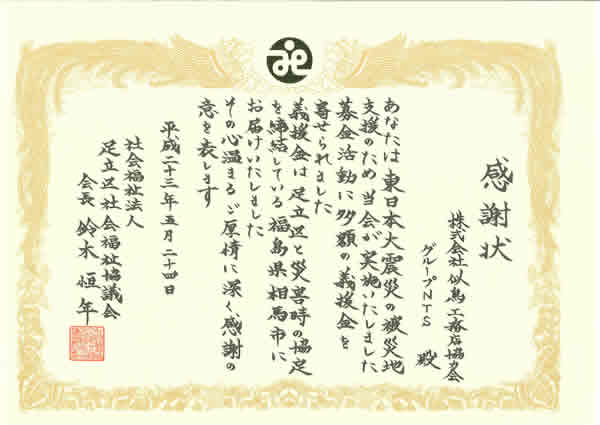 感謝状
株式会社似鳥工務店協力会
グループNTS 殿
あなたは東日本大震災の被災地
支援のため当会が実施いたしました
募金活動に多額の義援金を
寄せられました
義援金は足立区と災害時の協定
を締結している福島県相馬市に
お届けいたしました
その心温まるご厚情に深く感謝の
意を表します
平成二十三年五月二十四日
社会福祉法人
足立区社会福祉協議会
会長 鈴木恒年